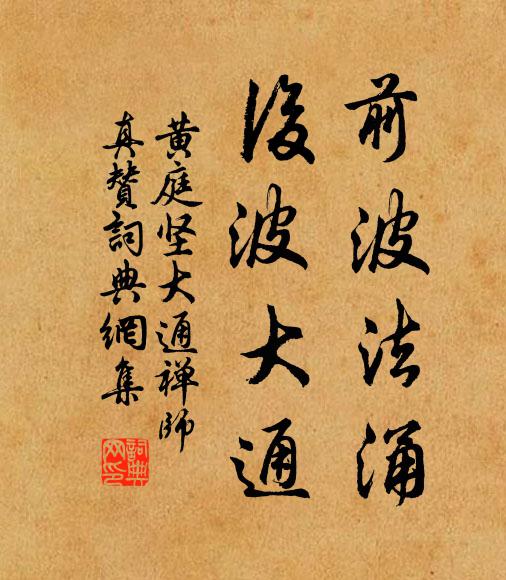 前波法涌
後波大通
黄庭坚大通禅师
真赞詞典網集
詞典网印